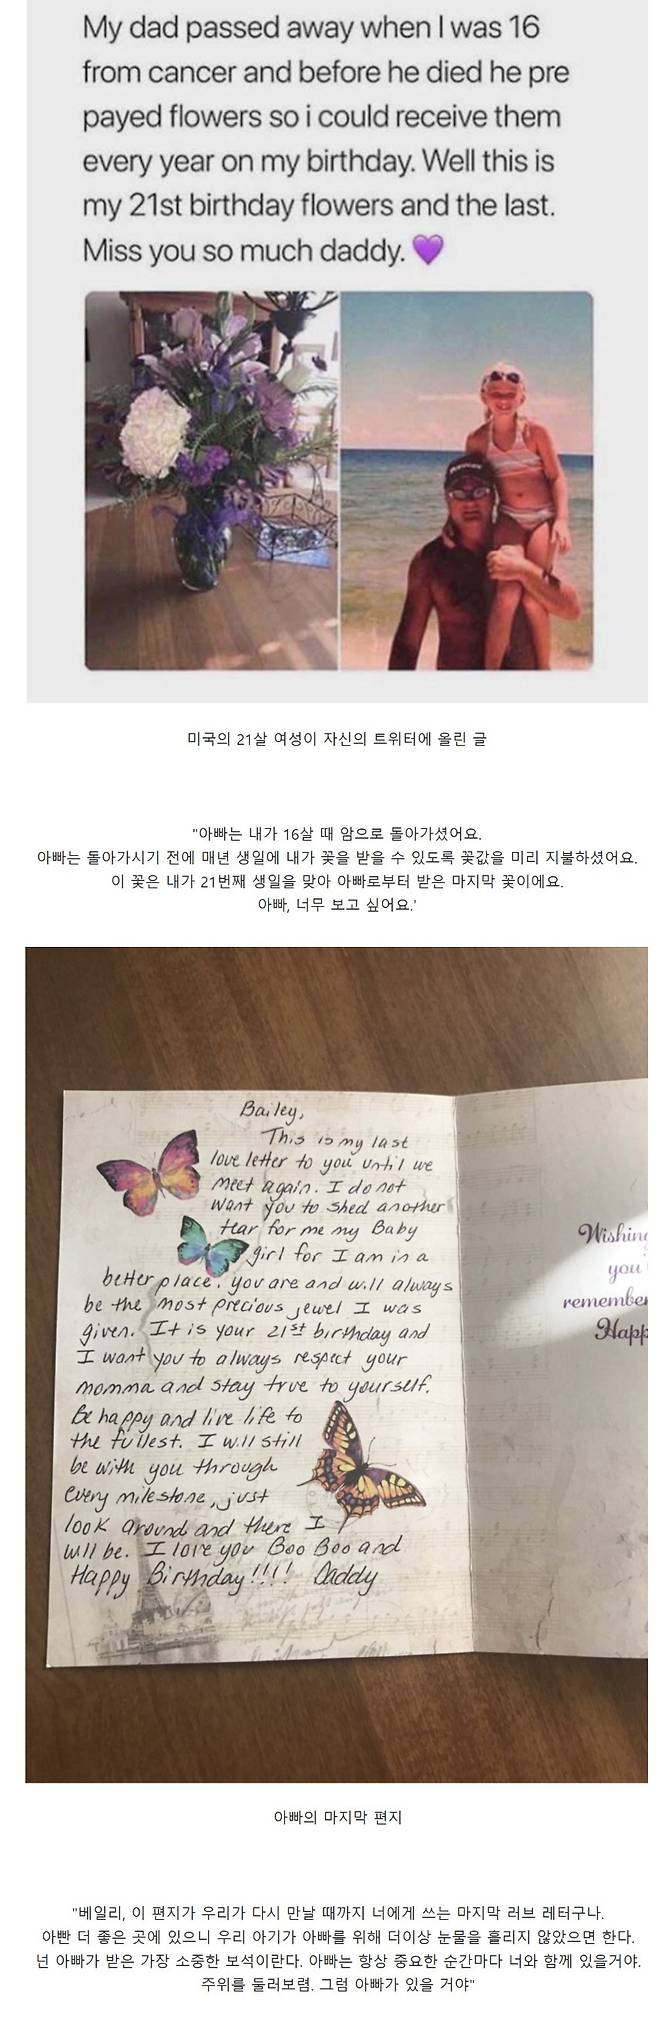 My dad passed away when I was 16
from cancer and before he died he pre
payed flowers so i could receive them
every year on my birthday. Well this is
my 21st birthday flowers and the last.
Miss you so much daddy. 💜
미국의 21살 여성이 자신의 트위터에 올린 글
"아빠는 내가 16살 때 암으로 돌아가셨어요.
아빠는 돌아가시기 전에 매년 생일에 내가 꽃을 받을 수 있도록 꽃값을 미리 지불하셨어요.
이 꽃은 내가 21번째 생일을 맞아 아빠로부터 받은 마지막 꽃이에요.
아빠, 너무 보고 싶어요.'
Bailey,
This is my last
love letter to you until we
meet again. I do not
want you to shed another
tear for me my Baby
girl for I am in a
better place. you are and will always
be the most precious jewel I was
given. It is your 21st birthday and
I want you to always respect your
momma and stay true to yourself.
Be happy and live life to
the fullest. I will still
be with you through
every milestone, just
look around and there I
will be. I love you Boo Boo and
Happy Birthday!!!! Daddy
Wishing
you
remember
Happ
아빠의 마지막 편지
"베일리, 이 편지가 우리가 다시 만날 때까지 너에게 쓰는 마지막 러브 레터구나.
아빤 더 좋은 곳에 있으니 우리 아기가 아빠를 위해 더이상 눈물을 흘리지 않았으면 한다.
넌 아빠가 받은 가장 소중한 보석이란다. 아빠는 항상 중요한 순간마다 너와 함께 있을거야.
주위를 둘러보렴. 그럼 아빠가 있을 거야"